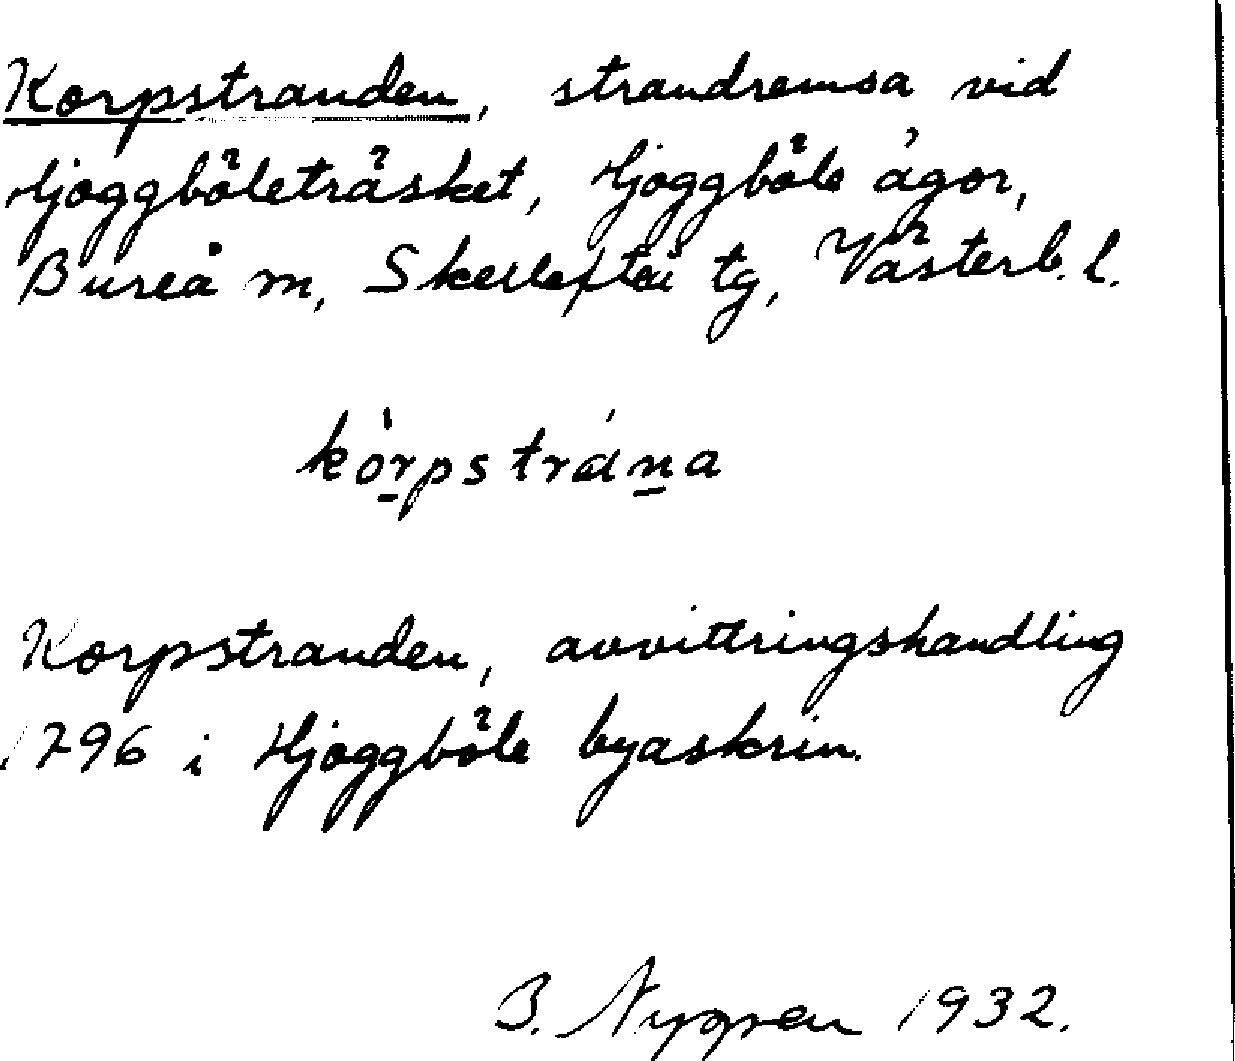 Korpstranden, strandremsa vid
Hjoggböleträsket, Hjoggböle ägor,
Bureå m, Skellefteå tg, Västerb. l.
kòr̲pstrán̲a
Korpstranden, avvittringshandling
1796 i Hjoggböle byaskrin.
B. Nygren 1932.